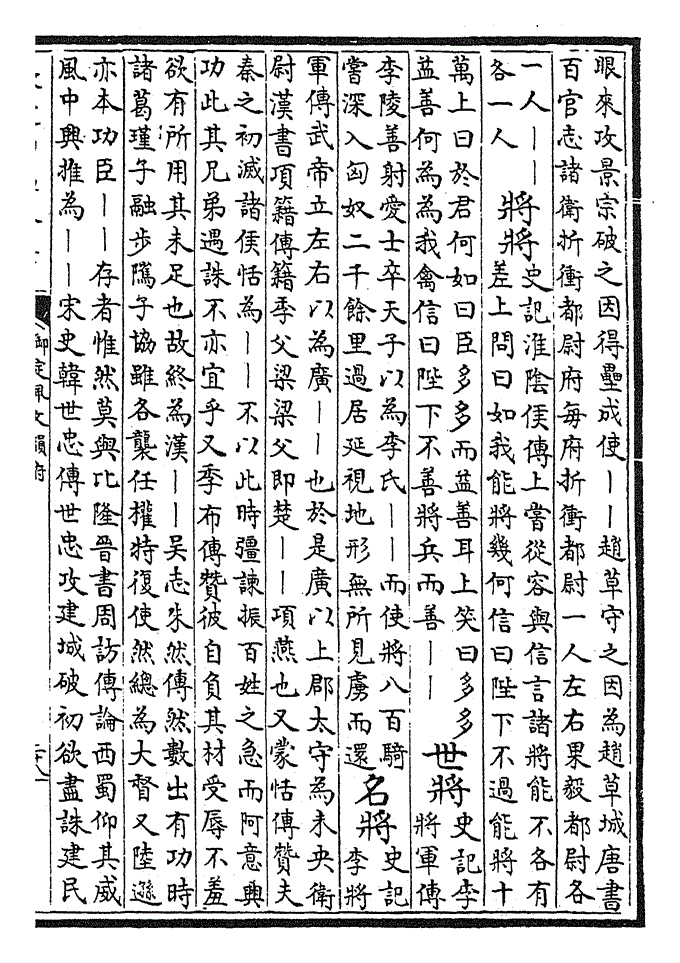 眼來攻景宗破之因得壘成使——趙草守之因為趙草城唐書
百官志諸衛折衝都尉府每府折衝都尉一人左右果毅都尉各
一人——
各一人
將將
史記淮陰侯傳上嘗從容與信言諸將能不各有
差上問曰如我能將幾何信曰陛下不過能將十
萬上曰於君何如曰臣多多而益善耳上笑曰多多
益善何為為我禽信曰陛下不善將兵而善——
世將
史記李
將軍傳
李陵善射愛士卒天子以為李氏——而使將八百騎
嘗深入匈奴二千餘里過居延視地形無所見虜而還
名將
史記
李將
軍傳武帝立左右以為廣——也於是廣以上郡太守為未央衛
尉漢書項籍傳籍季父梁梁父即楚——項燕也又蒙恬傳贊夫
秦之初滅諸侯恬為——不以此時彊諫振百姓之急而阿意興
功此其兄弟遇誅不亦宜乎又季布傳贊彼自負其材受辱不羞
欲有所用其未足也故終為漢——吳志朱然傳然數出有功時
諸葛瑾子融步隲子協雖各襲任權特復使然總為大督又陸遜
亦本功臣——存者惟然莫與比隆晉書周訪傳論西蜀仰其威
風中興推為——宋史韓世忠傳世忠攻建城破初欲盡誅建民
御定佩文韻府